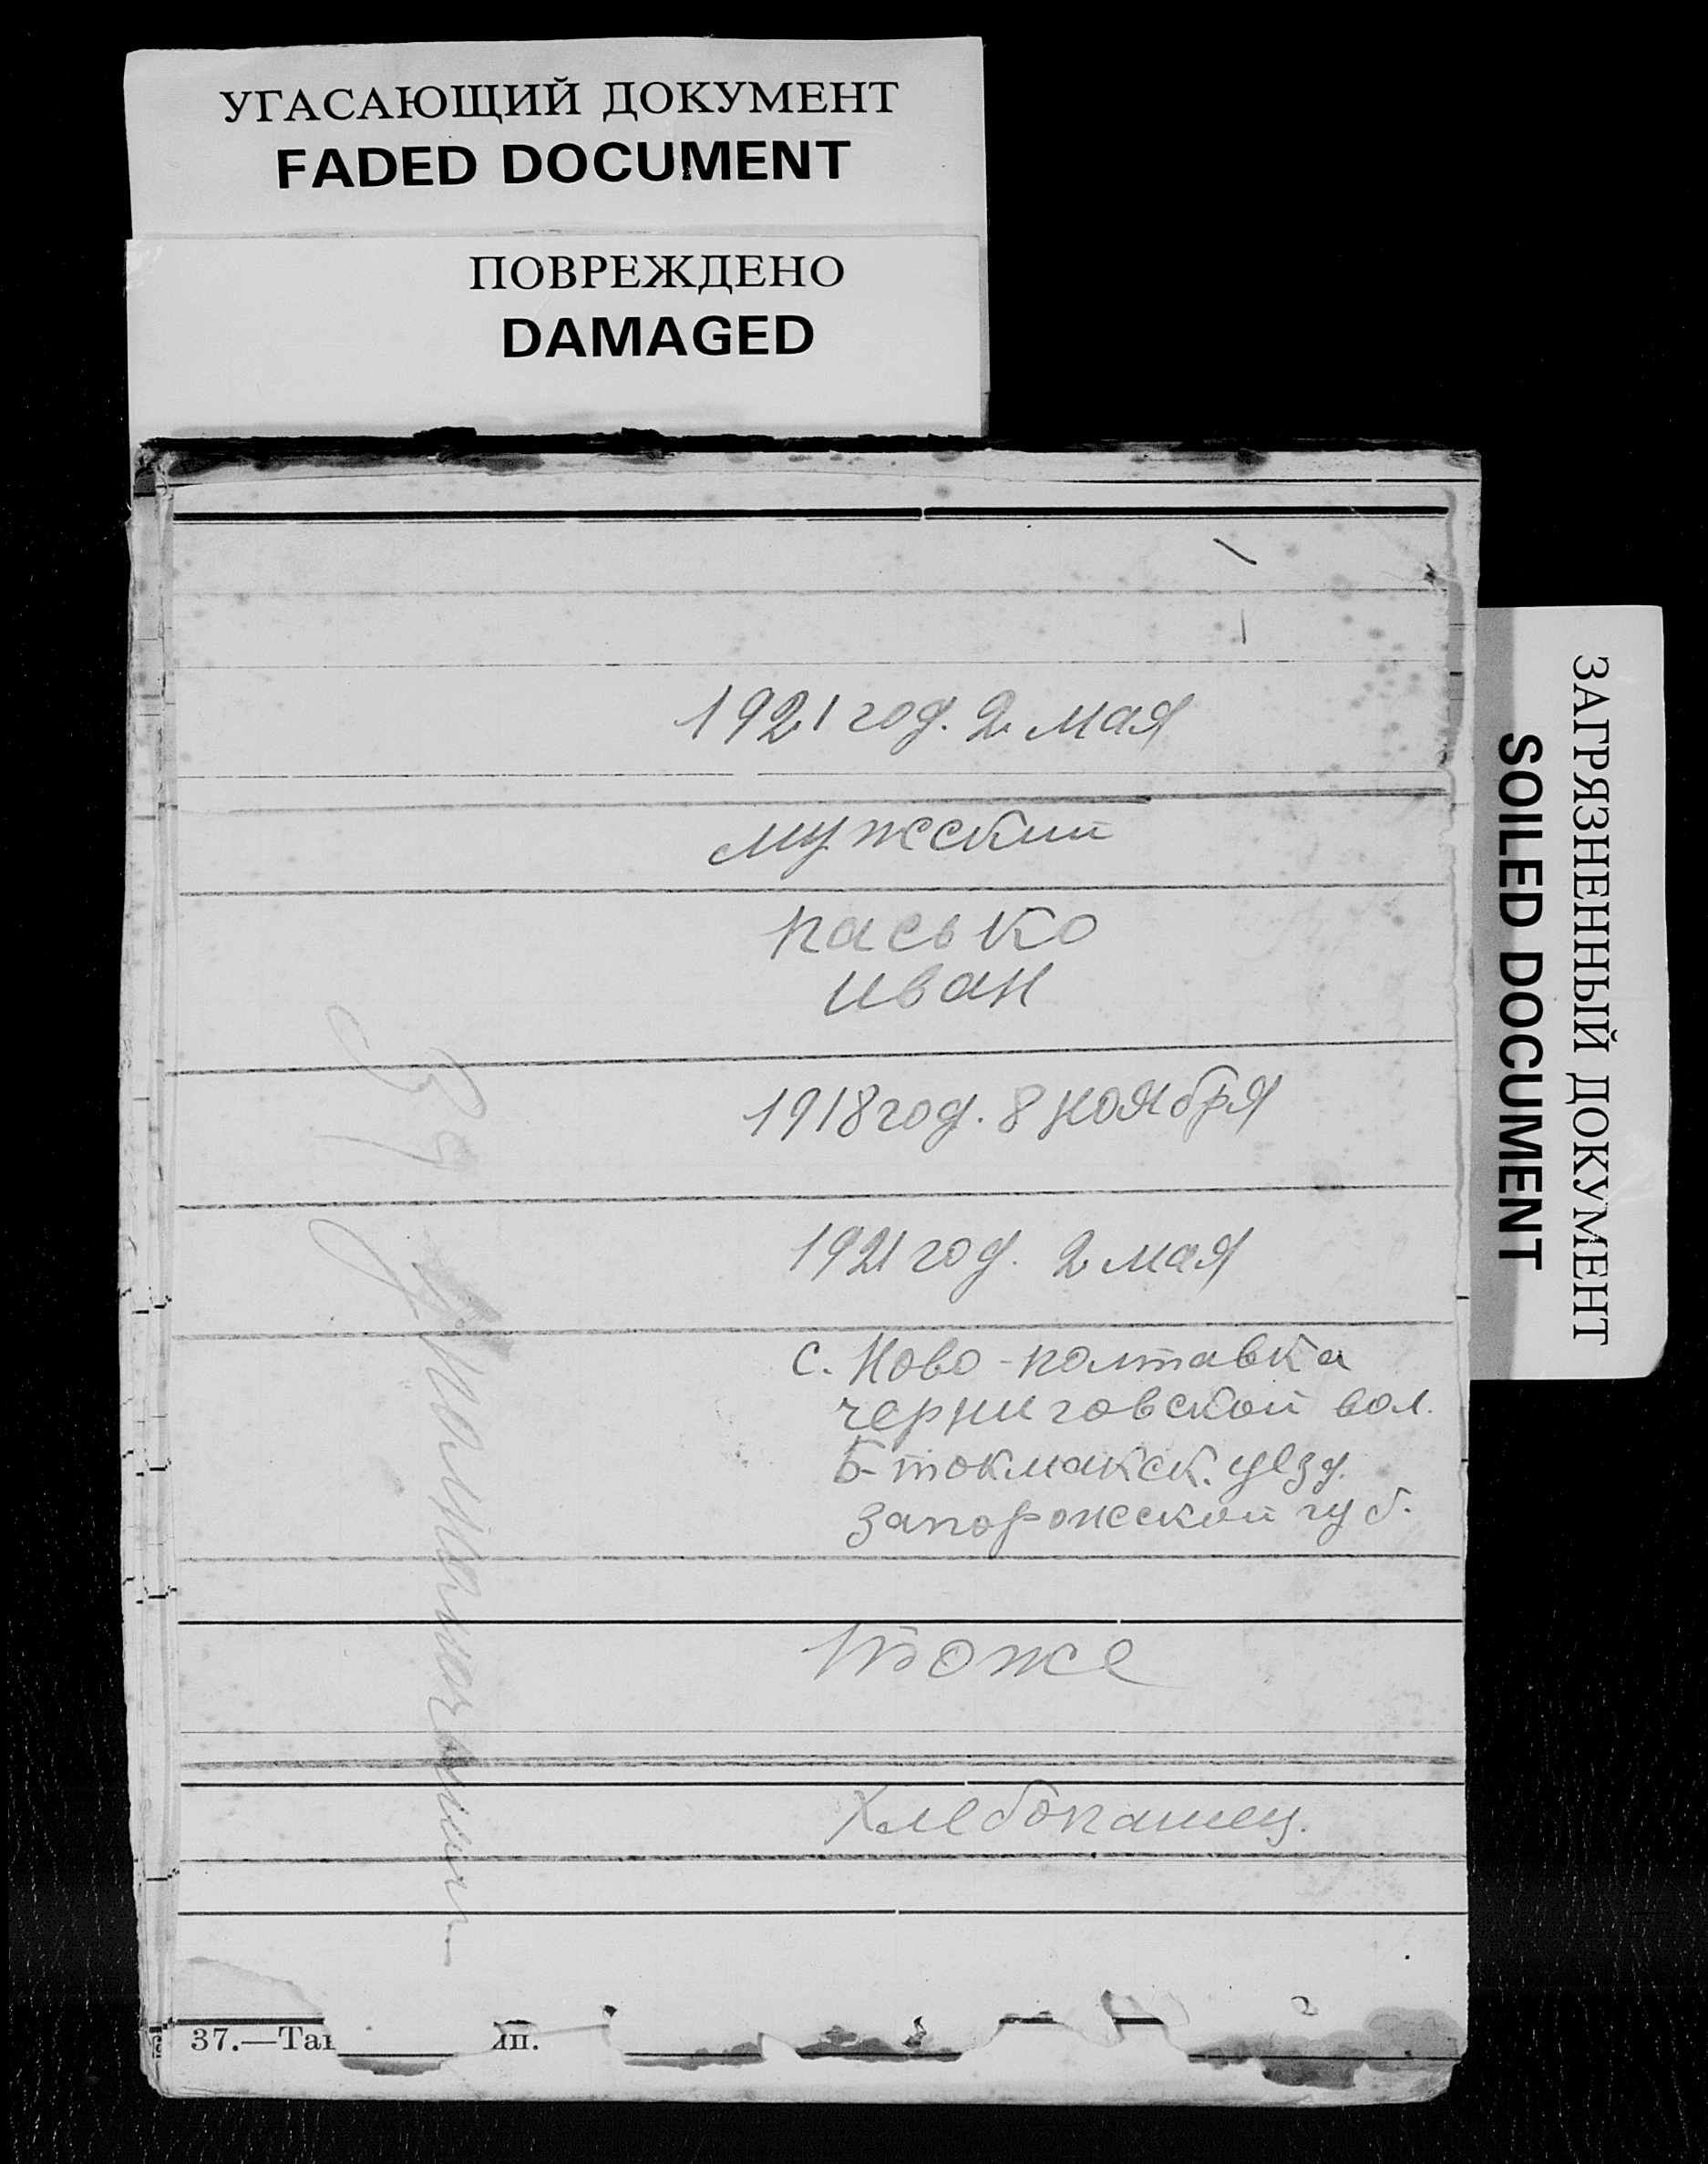 УГАСАЮЩИЙ ДОКУМЕНТ
FADED DOCUMENT
ПОВРЕЖДЕНО
DAMAGED
ЗАГРЯЗНЕННЫЙ ДОКУМЕНТ
SOILED DOCUMENT
1921 год. 2 мая
мужский
пасько
иван
1918 год. 8 ноября
1921 год. 2 мая
с. Ново-полтавка
черниговской вол.
Б-токмакск. уезд.
запорожской губ.
тоже
Хлебопашец.
37.—Та
ип.